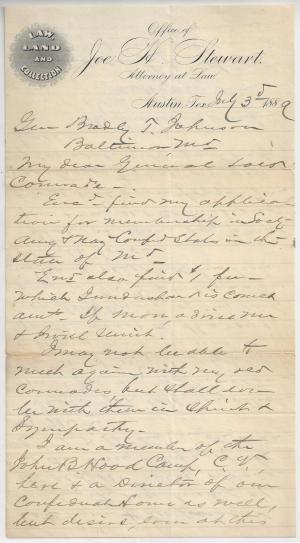 LAW,
LAND
AND
COLLECTION
Office of
Joe H. Stewart.
Attorney at Law
Austin, Tex July 3d 1889
Gen Bradley T. Johnson
Baltimore Md
My dear General & old
Comrade—.
Encd find my applica
tion for membership in Socty
Army & Navy Confed States in the
State of Md—
Enc also find $1, fee—
which I understand is correct
amt. If more, advise me
& I will remit.
I may not be able to
meet again with my old
Comrades, but shall ever
be with them in Spirit &
Sympathy.
I am a member of the
John B Hood Camp, C. V.,
here & a Director of our
Confederate Home as well,
but desire, even at this